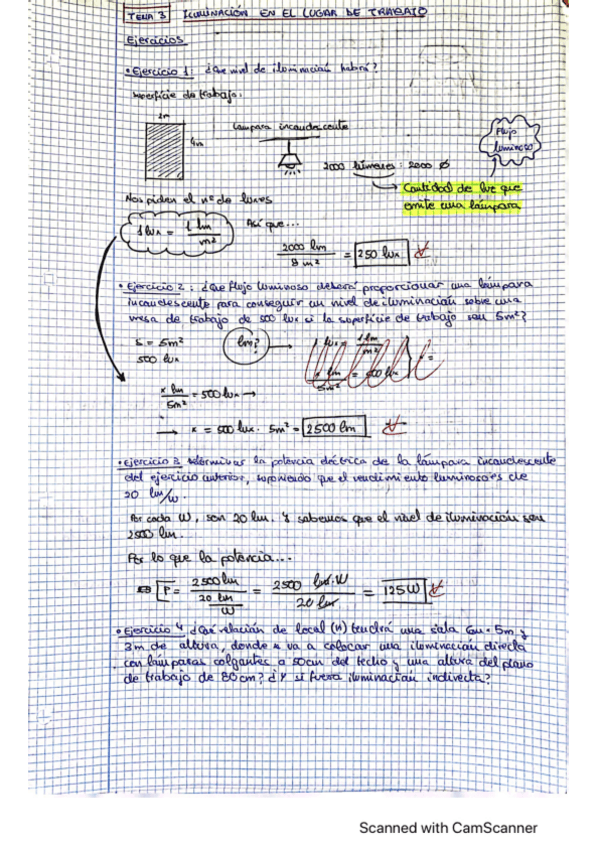 TEMA 3 ILUMINACIÓN EN EL LUGAR DE TRABAJO
Ejercicios
• Ejercicio 1: ¿Que nivel de iluminación habrá?
superficie de trabajo:
2m
4m
Lámpara incandescente
Flujo
luminoso
2000 lúmenes: 2000 Ø
Cantidad de luz que
emite una lámpara
Nos piden el nº de luxes
1 lux = 1 lm / m²
Así que...
2000 lm / 8 m² = 250 lux
• Ejercicio 2: ¿Que flujo luminoso deberá proporcionar una lámpara
incandescente para conseguir un nivel de iluminación sobre una
mesa de trabajo de 500 lux si la superficie de trabajo son 5m²?
S = 5m²
500 lux
lm?
1 lux = 1 lm / m²
x lm / 5m² = 500 lux
x =
x lm / 5m² = 500 lux →
→ x = 500 lux · 5m² = 2500 lm
• Ejercicio 3 determinar la potencia eléctrica de la lámpara incandescente
del ejercicio anterior, suponiendo que el rendimiento luminoso es de
20 lm/w.
Por cada W, son 20 lm. Y sabemos que el nivel de iluminación son
2500 lm.
Por lo que la potencia...
P = 2500 lm / 20 lm / W = 2500 lm·W / 20 lm = 125 W
• Ejercicio 4 ¿Qué relación de local (K) tendrá una sala 6m · 5m y
3m de altura, donde se va a colocar una iluminación directa
con lámparas colgantes a 50cm del techo y una altura del plano
de trabajo de 80cm? ¿Y si fuera iluminación indirecta?
Scanned with CamScanner